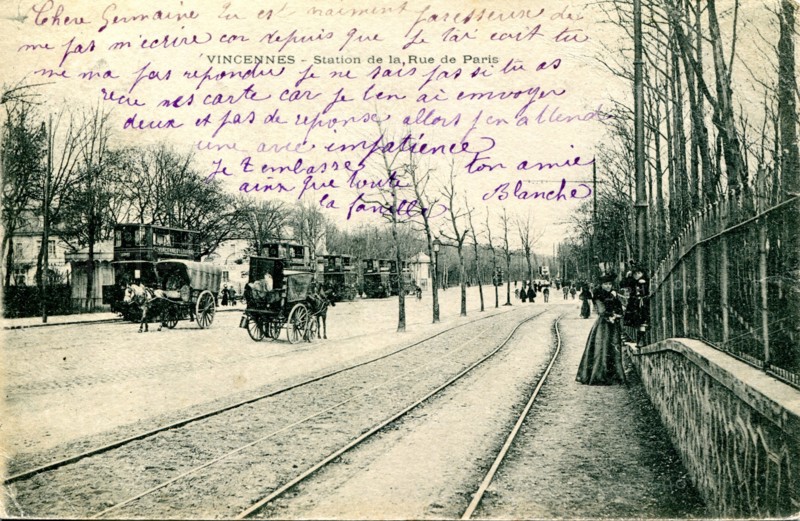 Chère Germaine Tu est vraiment paresseuse de
me pas m'ecrire car depuis que je t'ai écrit tu
VINCENNES - Station de la, Rue de Paris
me ma pas repondu je ne sais pas si tu as
recu mes carte car je t'en ai envoyer
deux et pas de reponse alors j'en attend
une avec impatience
Je t'embrasse ton amie
ainsi que toute Blanche
la famille